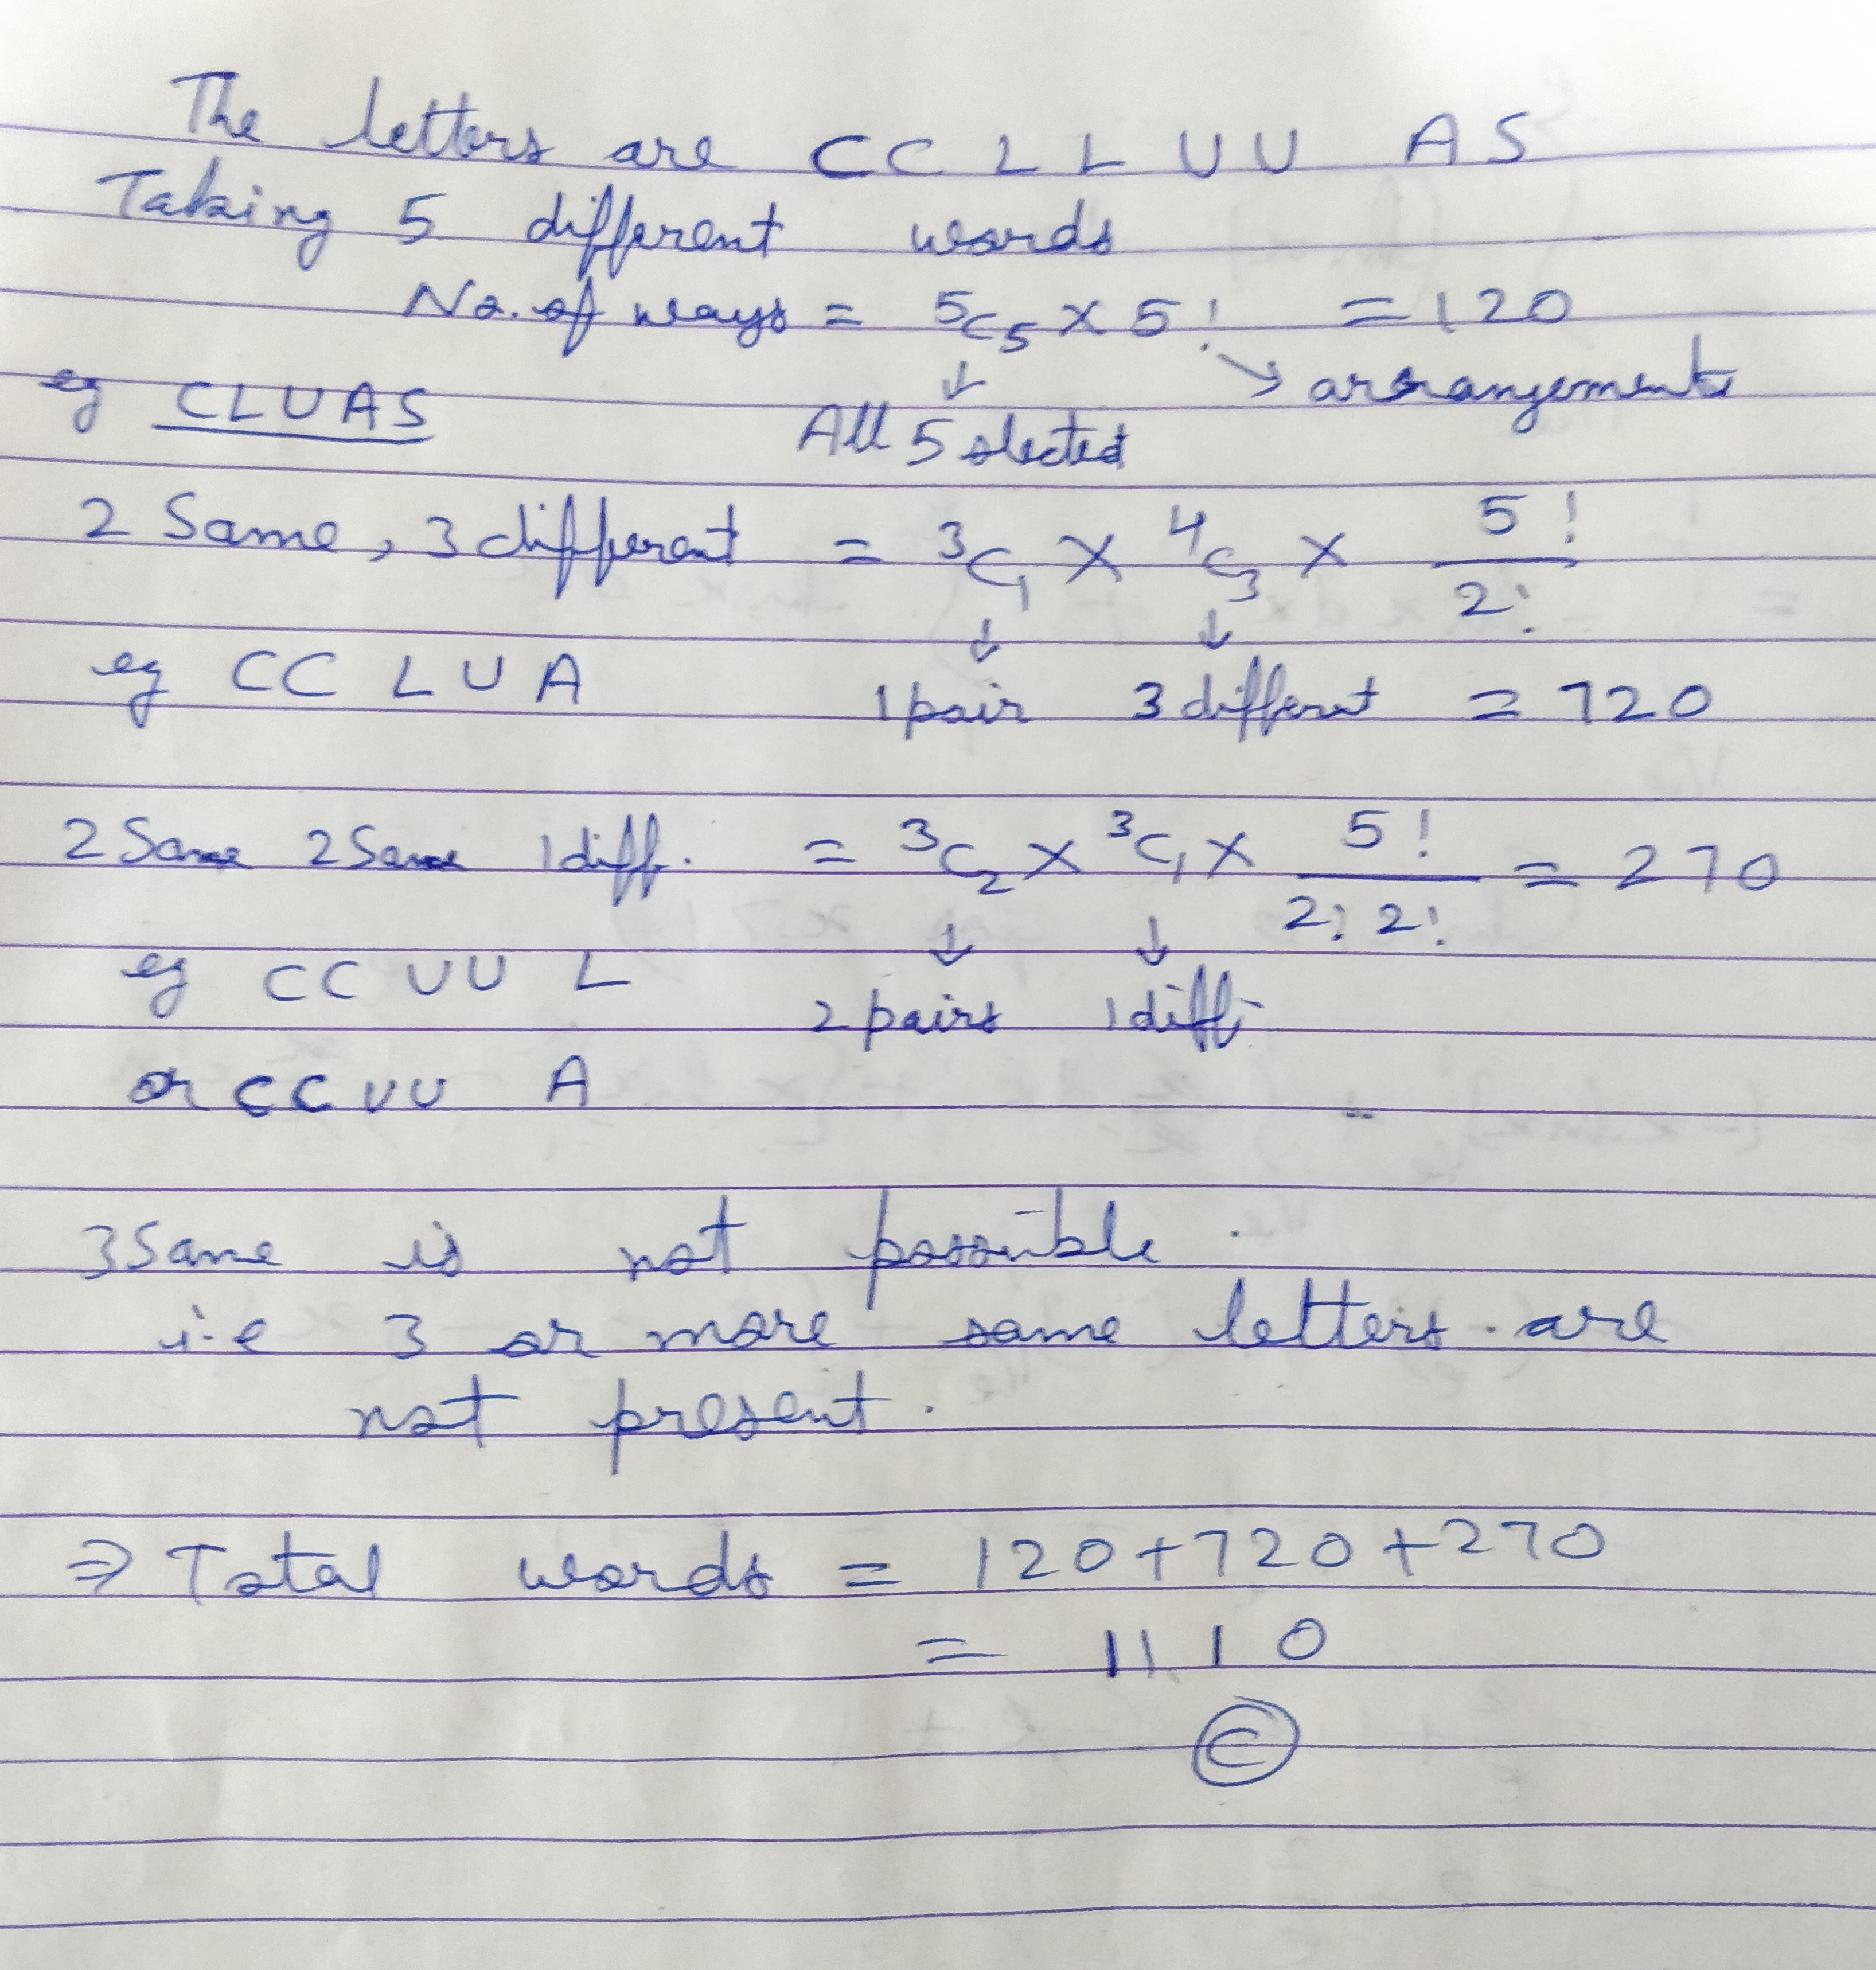 The letters are CC LL UU AS
Taking 5 different words
No. of ways = ⁵C₅ × 5! = 120
↓ ↘ arrangements
eg CLUAS All 5 slected
2 Same, 3 different = ³C₁ × ⁴C₃ × 5!/2!
↓ ↓
eg CC L U A 1 pair 3 differnt = 720
2 Same 2 Same 1 diff. = ³C₂ × ³C₁ × 5!/2! 2! = 270
↓ ↓
eg CC UU L 2 pairs 1 diff.
or CC UU A
3 Same is not possible.
i.e 3 or more same letters are
not present.
⇒ Total words = 120+720+270
= 1110
C